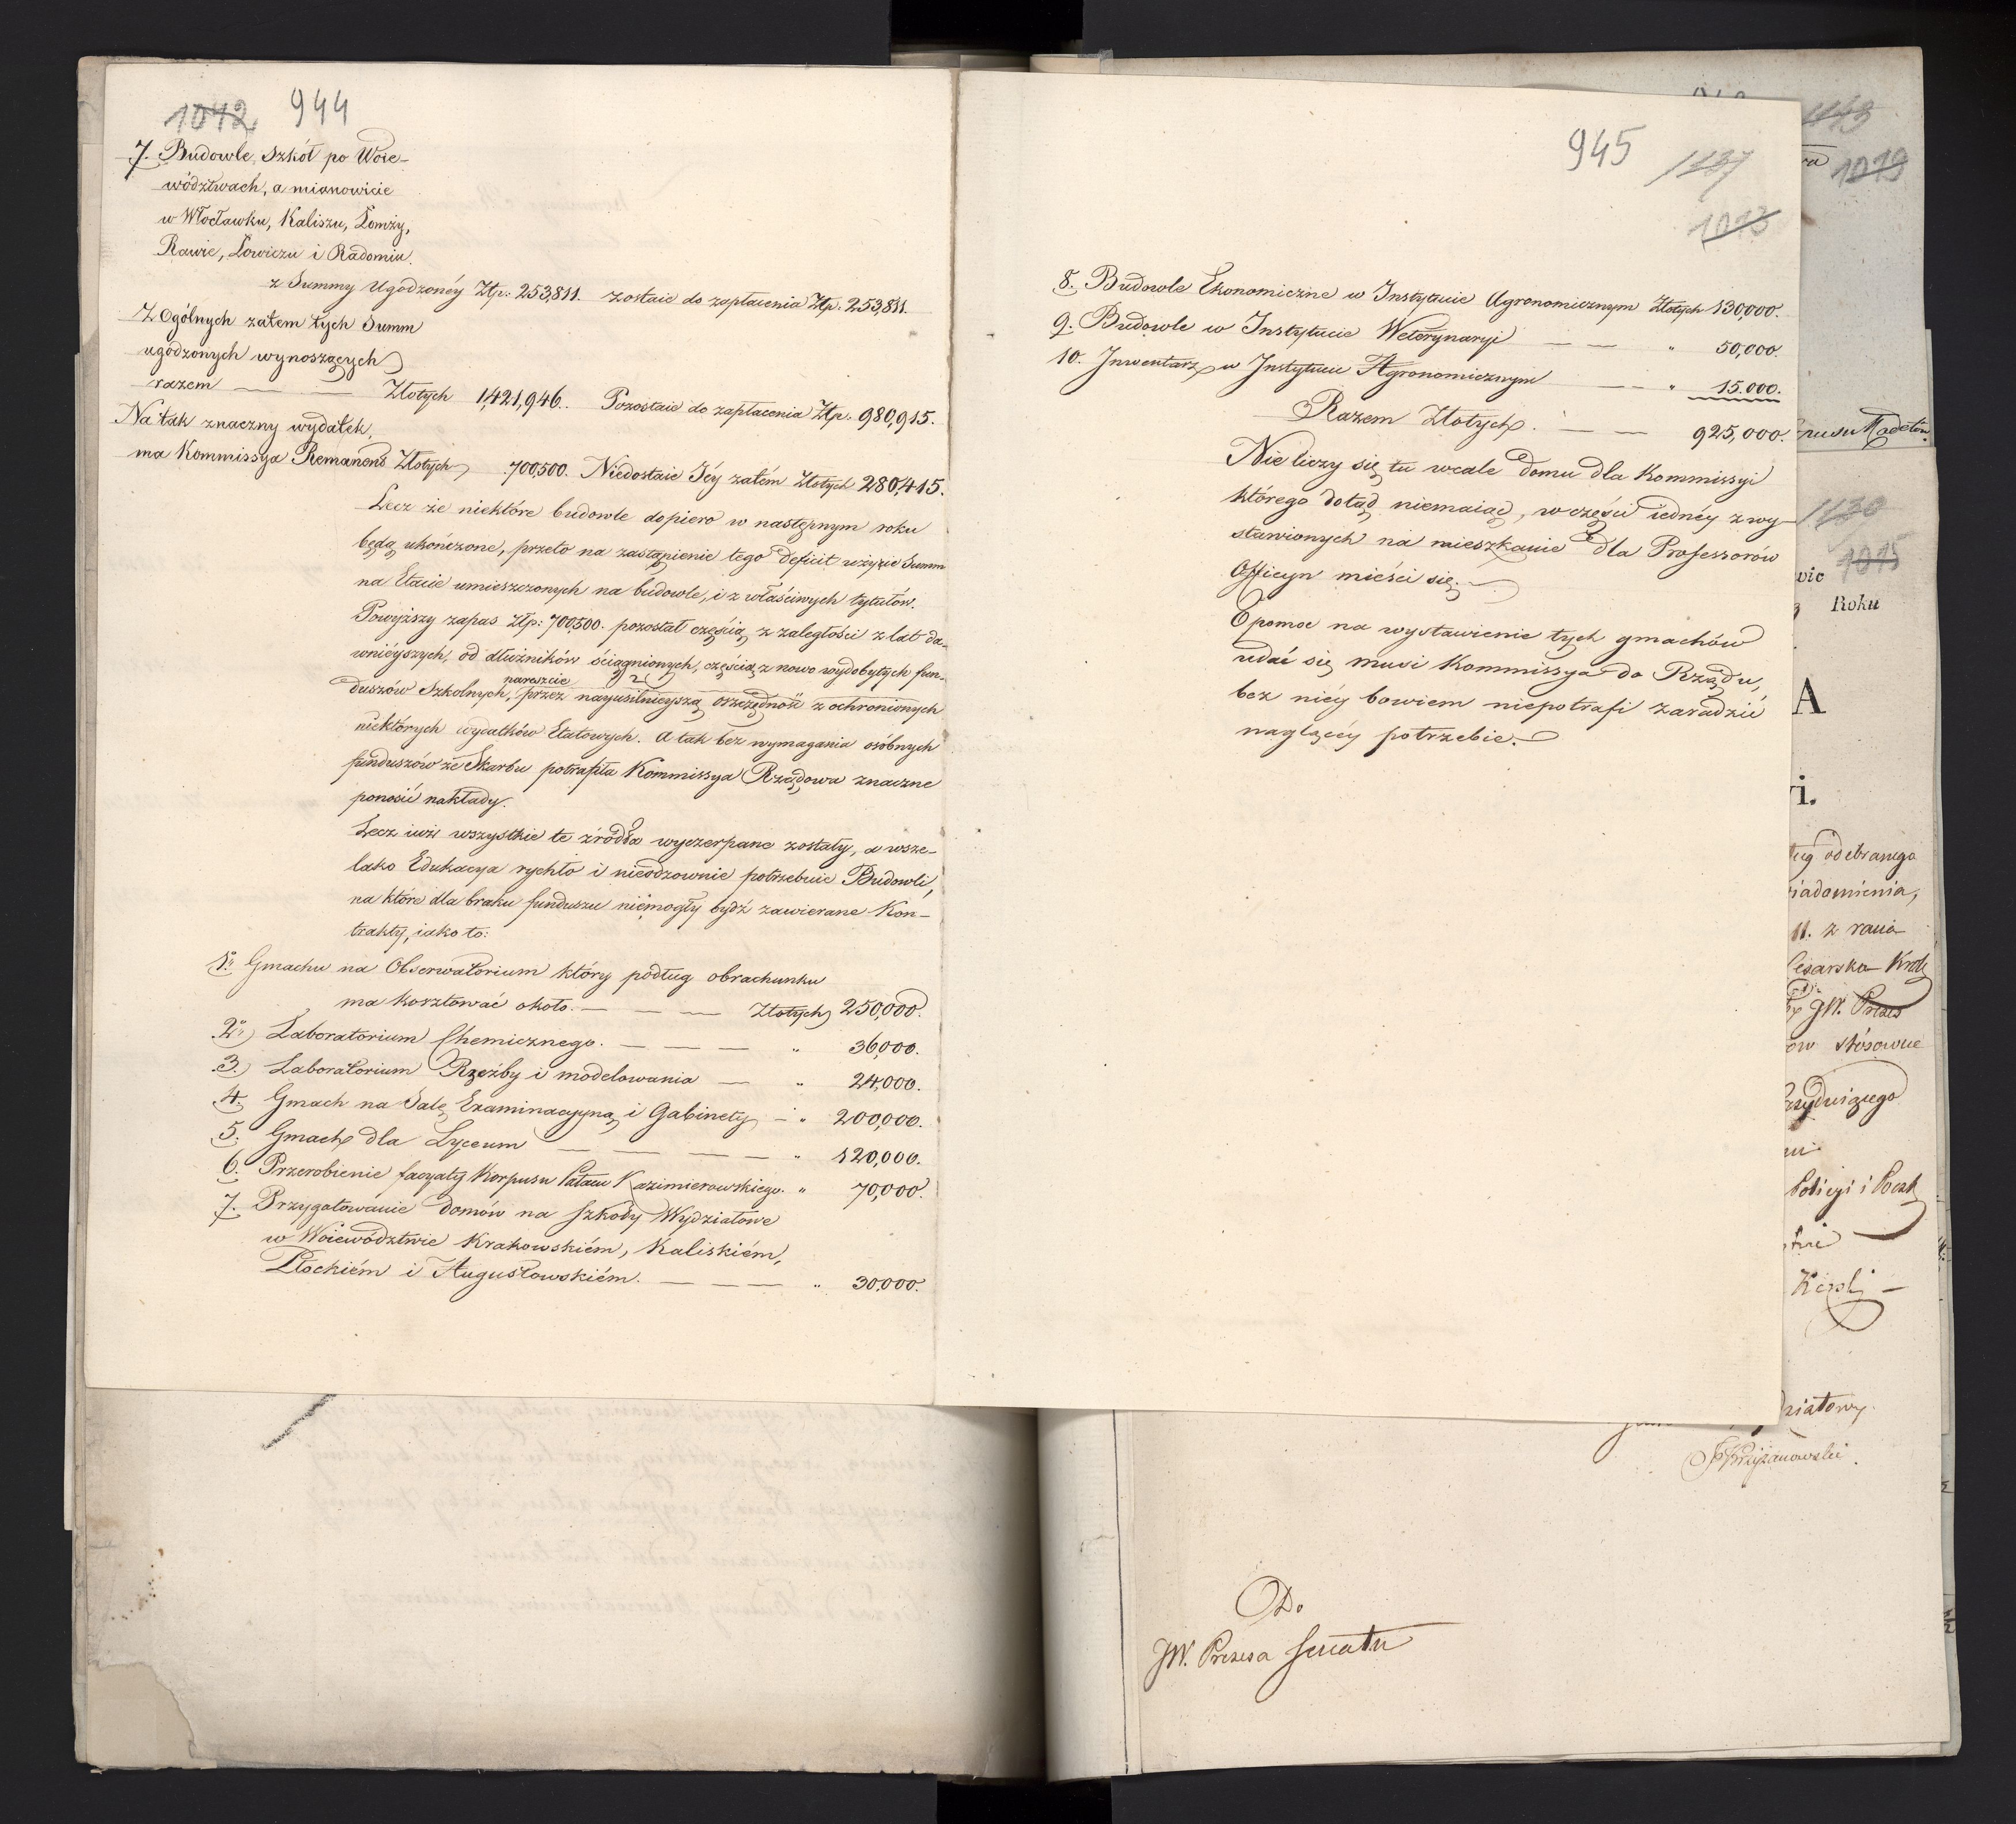 1012 944
7. Budowle Szkół po Woie-
wództwach, a mianowicie
w Włocławku, Kaliszu, Łomży,
Rawie, Łowiczu i Radomiu.
z Summy ugodzonéy Złp: 253,811. zostaie do zapłacenia Złp. 253,811.
Z Ogólnych zatem tych Summ
ugodzonych wynoszących
razem — — Złotych 1,421,946. Pozostaie do zapłacenia Złp. 980,915.
Na tak znaczny wydatek,
ma Kommissya Remanens Złotych 700,500. Niedostaie Jéy zatém Złotych 280,415.
Lecz że niektóre budowle dopiero w następnym roku
będą ukończone, przeto na zastąpienie tego Deficit użyie Summ
na Etacie umieszczonych na budowle, i z właściwych tytułów.
Powyższy zapas Złp: 700,500. pozostał częścią z zaległości z lat da-
wnieyszych, od dłużników ściągnionych, częścią z nowo wydobytych fun-
nareszcie
duszów Szkolnych, przez nayusilnieyszą oszczędność z ochronionych
niektórych wydatków Etatowych. A tak bez wymagania osóbnych
funduszów ze Skarbu potrafiła Kommissya Rządowa znaczne
ponosić nakłady.
Lecz iuż wszystkie te źródła wyczerpane zostały, a wsze-
lako Edukacya rychło i nieodzownie potrzebuie Budowli,
na które dla braku funduszu niemogły bydź zawierane Kon-
trakty, iako to:
1. Gmachu na Obserwatorium który podług obrachunku
ma kosztować około. — — — Złotych 250,000.
2. Laboratorium Chemicznego. — — — " 36,000.
3. Laboratorium Rzeźby i modelowania — " 24,000.
4. Gmach na Salę Examinacyyną i Gabinety — " 200,000.
5. Gmach dla Lyceum — — — — " 120,000.
6. Przerobienie facyaty Korpusu Pałacu Kazimierowskiego. " 70,000.
7. Przygotowanie Domów na Szkoły Wydziałowe
w Woiewództwie Krakowskiém, Kaliskiém,
Płockiém i Augustowskiém. — — — " 30,000.
945 1137
1013
8. Budowle Ekonomiczne w Instytucie Agronomicznym Złotych 130,000.
9. Budowle w Instytucie Weterynaryi — — " 50,000.
10. Inwentarz w Instytucie Agronomicznym — — " 15.000.
Razem Złotych. — — 925,000.
Nie liczy się tu wcale domu dla Kommissyi
którego dotąd niemaiąc, w części iednéy z wy-
stawionych na mieszkanie dla Professorów
Officyn mieści się.
O pomoc na wystawienie tych gmachów
udać się musi Kommissya do Rządu,
bez niéy bowiem niepotrafi zaradzić
naglącéy potrzebie.
1019
1130
1015
Roku
A
i.
odebranego
iadomienia,
11. z rana
JW. Prezes
Policyi i Poczt
działowy.
Do
JW. Prezesa Senatu